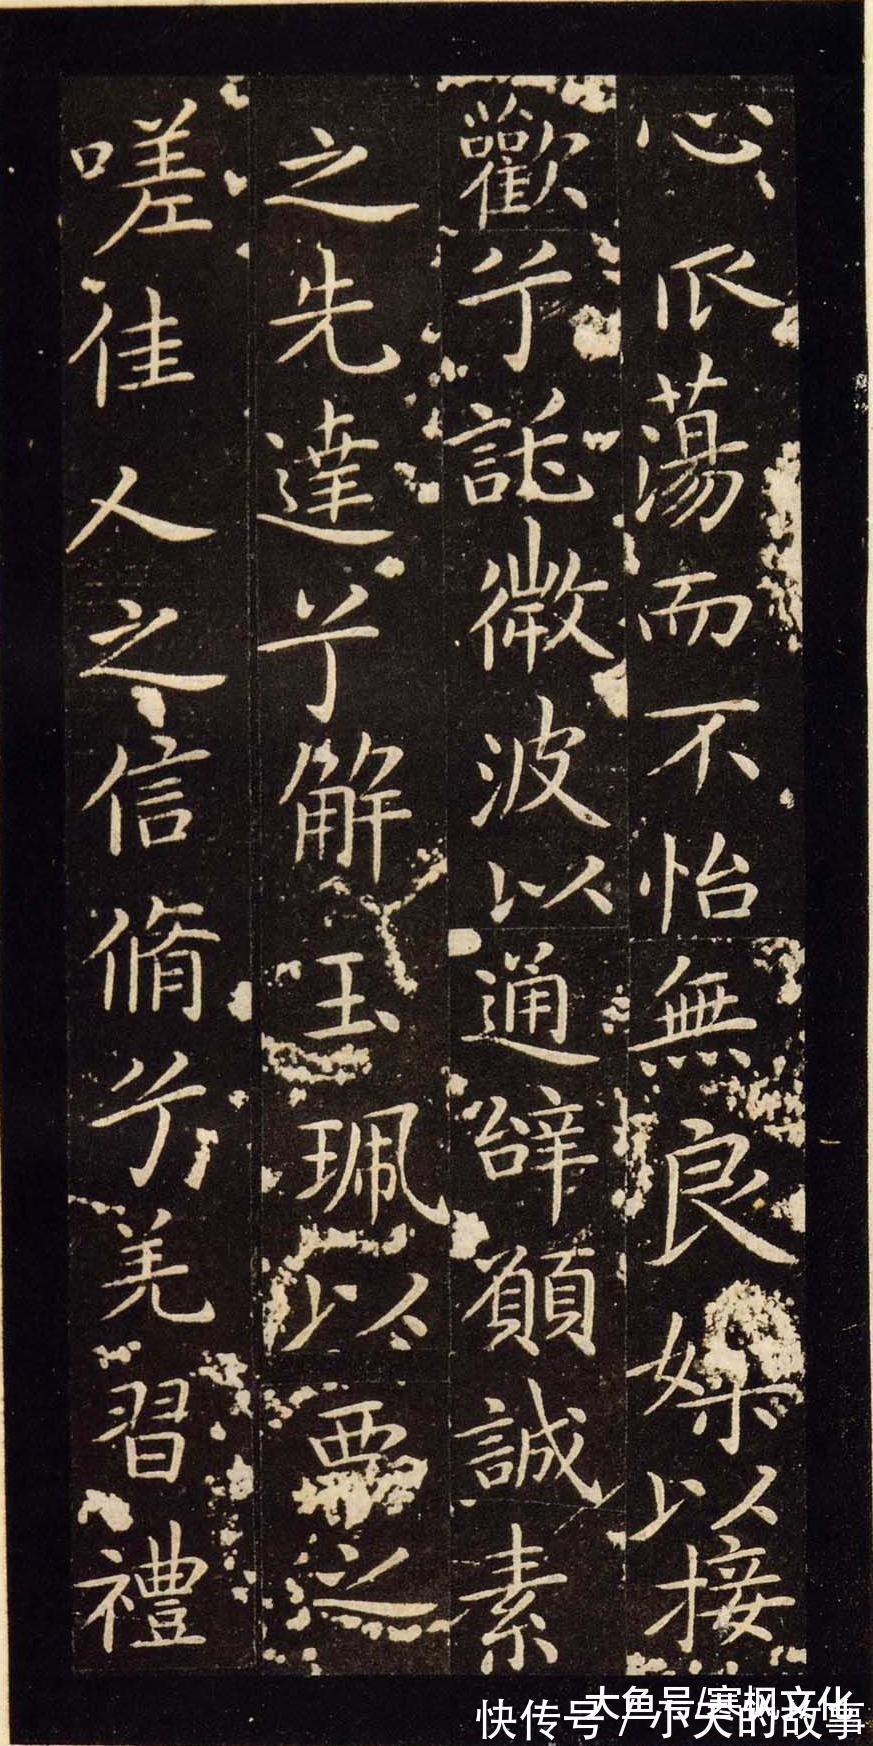 心振蕩而不怡無良媒以接
歡兮託微波以通辭願誠素
之先達兮解玉珮以要之
嗟佳人之信脩兮羌習禮
大鱼号/寒枫文化
快传号/小天的故事